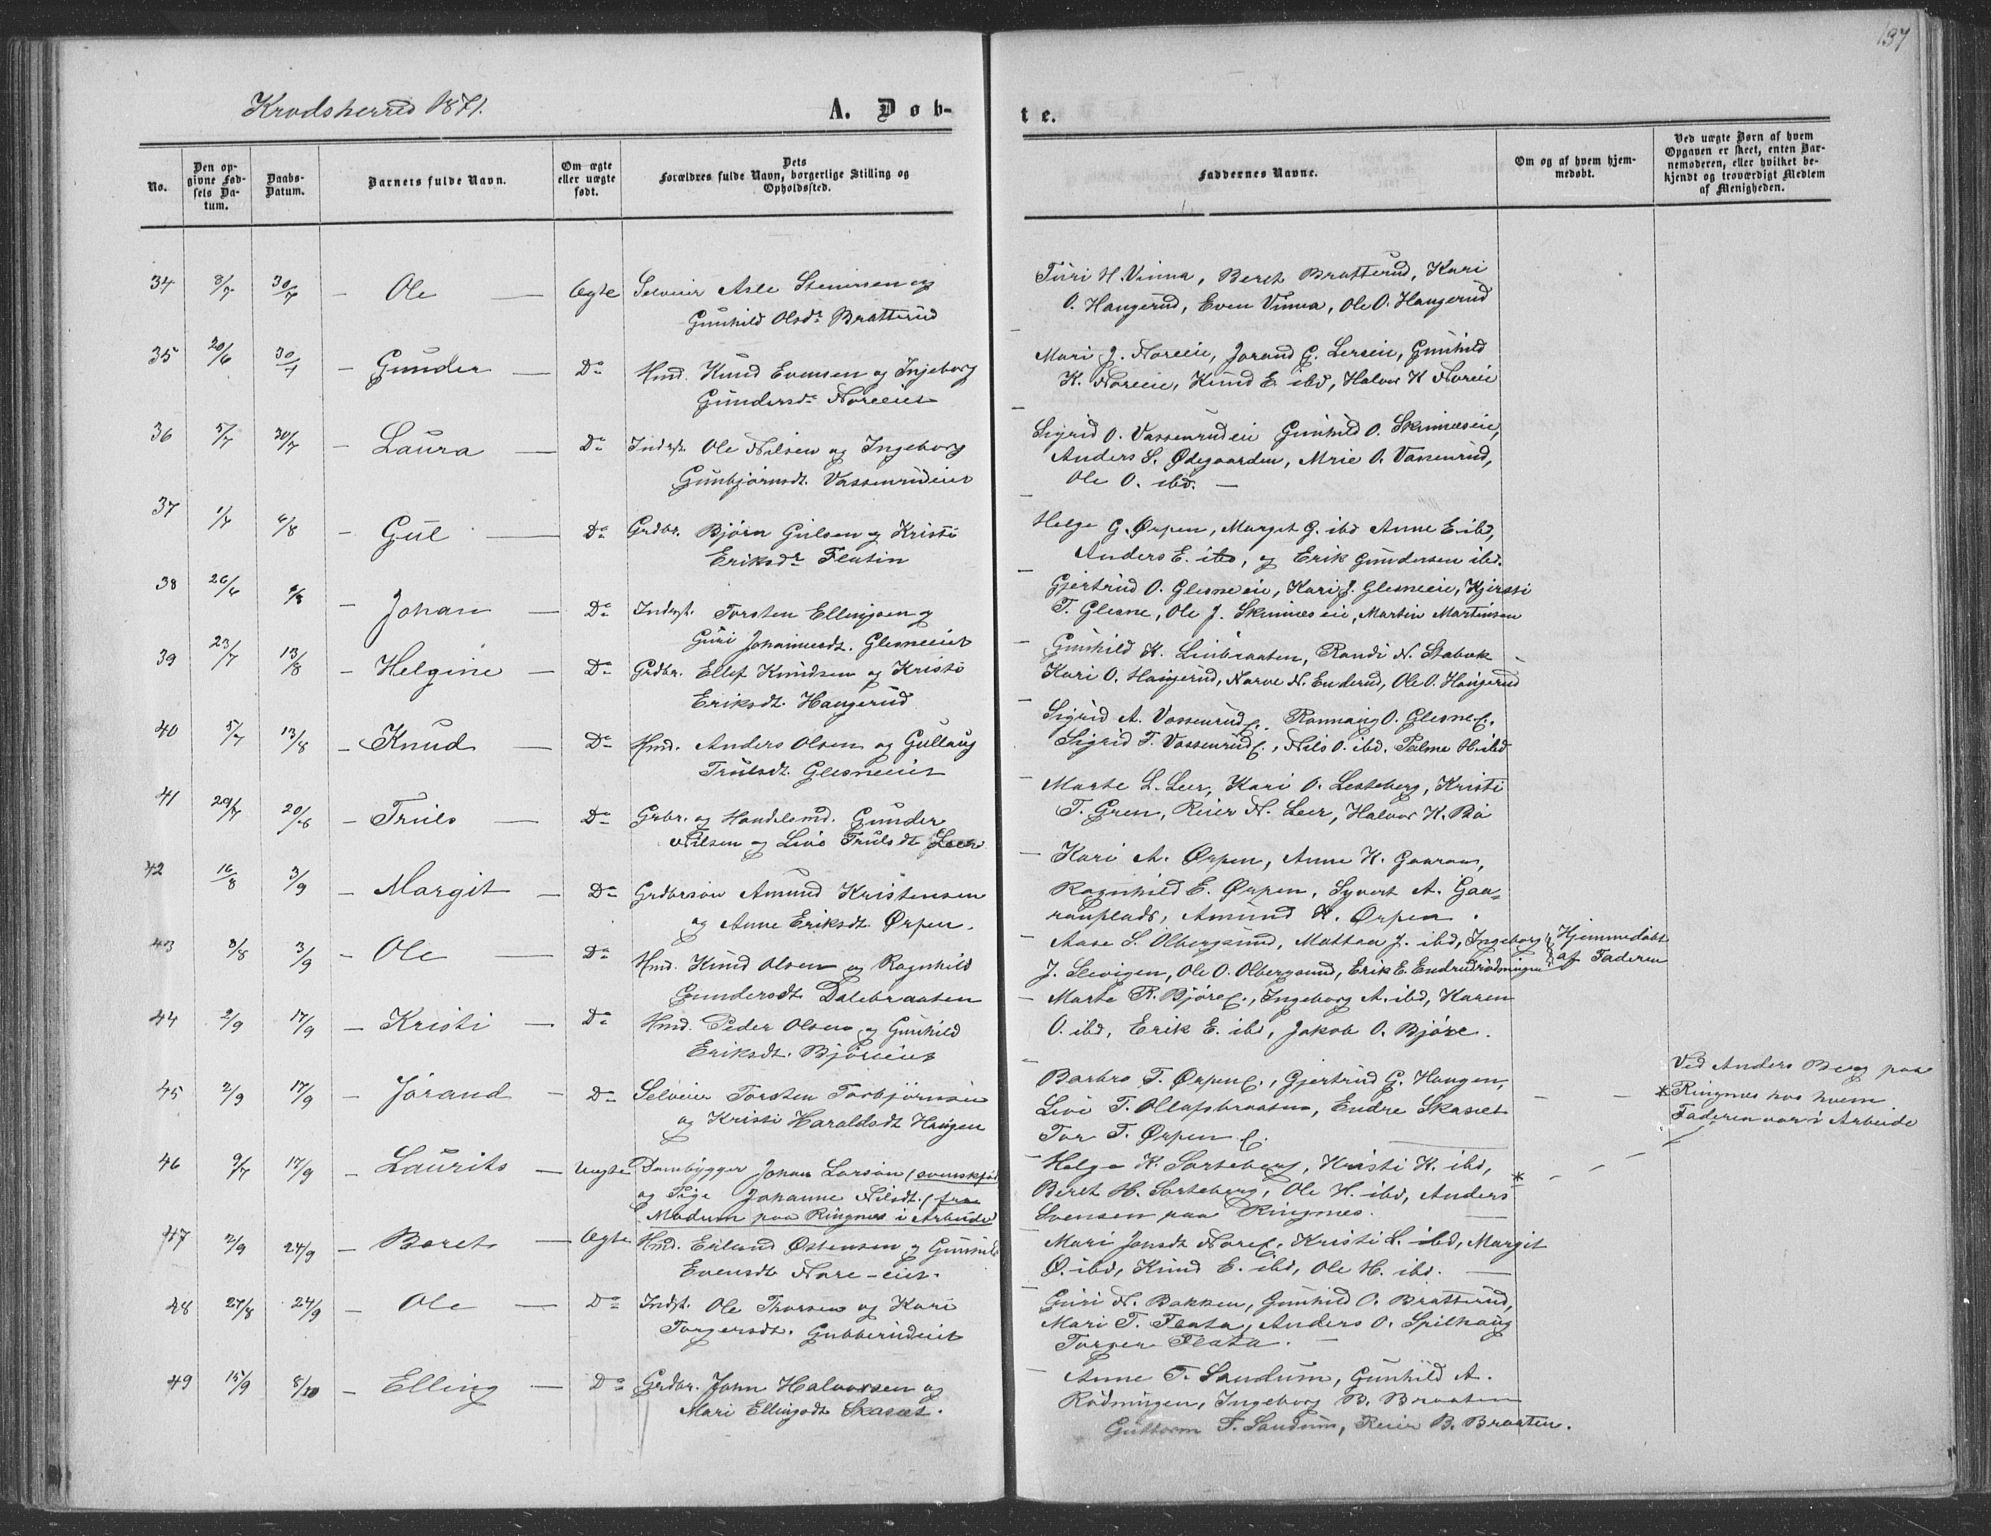 137
Krødsherred 1871.
A. Døb-
te.
No.
Den op-
givne Fød-
sels Da-
tum.
Daabs-
Datum.
Barnets fulde Navn.
Om ægte
eller uægte
født.
Dets
Forældres fulde Navn, borgerlige Stilling og
Opholdssted.
Faddernes Navne.
Om og af hvem hjem-
medøbt.
Ved uægte Børn af hvem
Opgaven er skeet, enten Bar-
nemoderen, eller hvilket be-
kjendt og troværdigt Medlem
af Menigheden.
34 8/7 30/7 – Ole — Ægte Selveier Asle Steinsen og
Gunhild Olsdr Bratterud
Turi H. Vinna, Beret Bratterud, Kari
O. Haugerud, Even Vinna, Ole O. Haugerud
35 20/6 30/7 – Gunder — Do Hmd. Knud Evensen og Ingeborg
Gundersdr Noreeiet
Mari J. Noreeie, Jorand G. Lerseie, Gunhild
K. Noreeie, Knud E. ibd, Halvor K Noreie
36 5/7 30/7 – Laura — Do Inderst. Ole Nilsen og Ingeborg
Gunbjørnsdt. Vassenrudeiet
Sigrid O. Vassenrudeie Gunhild O. Skinneseie,
Anders S. Ødegaarden, Mrie O. Vassenrud,
Ole O. ibd. —
37 1/7 6/8 – Gul — Do Grdbr. Bjørn Gulsen og Kristi
Eriksdr Flatin
Helge G. Ørpen, Margit G. ibd Anne E. ibd,
Anders E. ibd, og Erik Gundersen ibd.
38 26/6 6/8 – Johan — Do Inderst. Torsten Ellingsen og
Guri Johannesdt. Glesneeiet
Gjertrud O. Glesneeie, Kari J. Glesneeie, Kjersti
T. Glesne, Ole J. Skinneseie, Martin Martinsen
39 23/7 13/8 – Helgine — Do Grdbr. Ellef Knudsen og Kristi
Eriksdt. Haugerud
Gunhild K. Linbraaten, Randi N. Stabæk
Kari O. Haugerud, Narve N. Enderud, Ole O. Haugerud
40 5/7 13/8 – Knud — Do Hmd. Anders Olsen og Gullaug
Trulsdt. Glesneeiet
Sigrid A. Vassenrude. Rannaug O. Glesnee.
Sigrid T. Vassenrude., Nils O. ibd. Palme H. ibd
41 29/7 20/8 – Truls — Do Grbr. og Handelsmd. Gunder
Nilsen og Live Trulsdt Leer
Marte L. Leer, Kari O. Lesteberg, Kristi
T. Gren, Reier N. Leer, Halvor K. Bø
42 16/8 3/9 – Margit — Do Grdbrsøn Amund Kristensen
og Anne Eriksdt. Ørpen.
Kari A. Ørpen, Anne K. Gaaraas,
Ragnhild E. Ørpen, Syvert A. Gaa-
rasplads, Amund K. Ørpen.
43 8/8 3/9 – Ole — Do Hmd. Knud Olsen og Ragnhild
Gundersdt Dalebraaten
Aase S. Olbergsund, Mathea J. ibd, Ingeborg
J. Slevigen, Ole O. Olbergsund, Erik E. Endrudrødningen
Hjemmedøbt
af Faderen
44 2/9 17/9 – Kristi — Do Hmd. Peder Olsen og Gunhild
Eriksdt. Bjøreeiet
Marte R. Bjøree., Ingeborg A. ibd, Karen
O. ibd, Erik E. ibd, Jakob O. Bjøre.
45 2/9 17/9 – Jørand — Do Selveier Torsten Torbjørnsen
og Kristi Haraldsdt Haugen
Barbro T. Ørpene., Gjertrud G. Haugen,
Live T. Ollafsbraaten, Endre Skaset
Tor T. Ørpen e.
46 9/7 17/9 – Laurits — Uægte Dambygger Johan Larson (svenskfød
og Pige Johanne Nilsdt. (fra
Modum paa Ringnes i Arbeide
Helge K. Sorteberg, Kristi K. ibd,
Beret H. Sorteberg, Ole H. ibd, Anders
Svensen paa Ringnes.
Ved Anders Berg paa
* Ringnes hos hvem
Faderen var i Arbeide
47 2/9 24/9 – Beret — Ægte Hmd. Erland Østensen og Gunhild
Evensdt Nore-eiet.
Mari Jonsdt Noree. Kristi S. ibd, Margit
Ø. ibd, Knud E. ibd, Ole H. ibd.
48 27/8 24/9 – Ole — Do Indst. Ole Thorsen og Kari
Torgersdt. Gubberudeiet
Guri N. Bakken, Gunhild O. Bratterud,
Mari T. Flata, Anders O. Spilhaug
Torger Flata. —
49 15/9 8/10 – Elling — Do Grdbr. John Halvorsen og
Mari Ellingsdt Skaset.
Anne T. Sandum, Gunhild A.
Rødningen, Ingeborg B. Braaten
Guttorm T. Sandum, Reier B. Braaten.